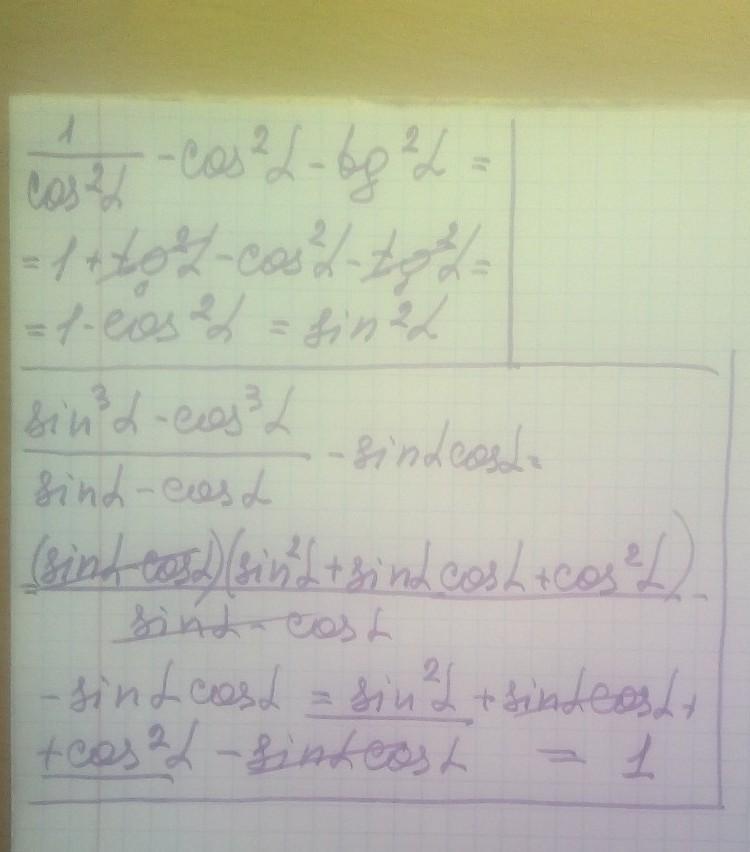 1/cos²α - cos²α - tg²α =
= 1 + tg²α - cos²α - tg²α =
= 1 - cos²α = sin²α
(sin³α - cos³α)/(sinα - cosα) - sinα cosα =
= (sinα - cosα)(sin²α + sinα cosα + cos²α)/(sinα - cosα) -
- sinα cosα = sin²α + sinα cosα +
+ cos²α - sinα cosα = 1